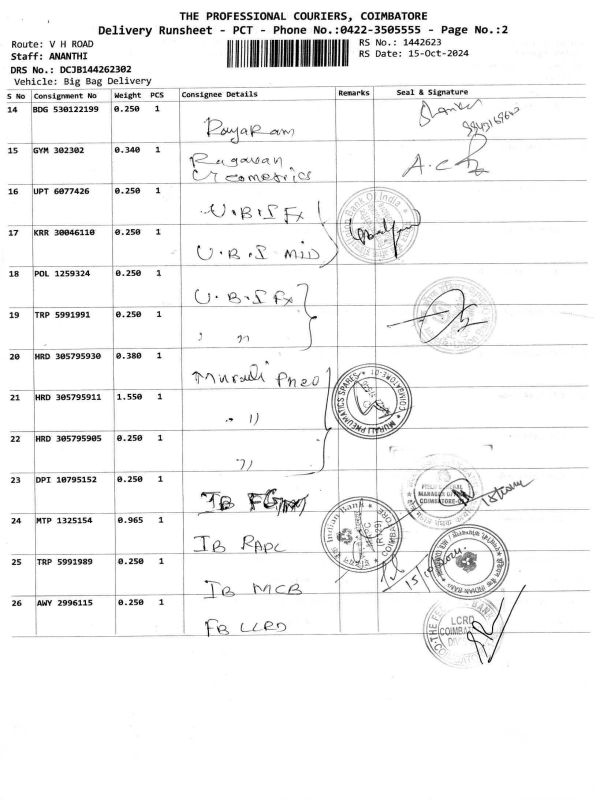 THE PROFESSIONAL COURIERS, COIMBATORE
Delivery Runsheet - PCT - Phone No.:0422-3505555 - Page No.:2
Route: V H ROAD
Staff: ANANTHI
DRS No.: DCJB144262302
Vehicle: Big Bag Delivery
RS No.: 1442623
RS Date: 15-Oct-2024
S No Consignment No Weight PCS Consignee Details Remarks Seal & Signature
14 BDG 530122199 0.250 1
15 GYM 302302 0.340 1 Ragavan
16 UPT 6077426 0.250 1 U.B.I Fx
17 KRR 30046110 0.250 1 U.B.I MID
18 POL 1259324 0.250 1 U.B.I Fx
19 TRP 5991991 0.250 1 " "
20 HRD 305795930 0.380 1 Murali Pneo
21 HRD 305795911 1.550 1 " "
MURALI PNEUMATICS SPARES * COIMBATORE-01
22 HRD 305795905 0.250 1 "
23 DPI 10795152 0.250 1 IB
MANAGER
COIMBATORE
24 MTP 1325154 0.965 1 IB RAPC
Indian Bank
COIMBATORE
25 TRP 5991989 0.250 1 IB MCB
15/10/2024
26 AWY 2996115 0.250 1 FB LCRD
LCRD